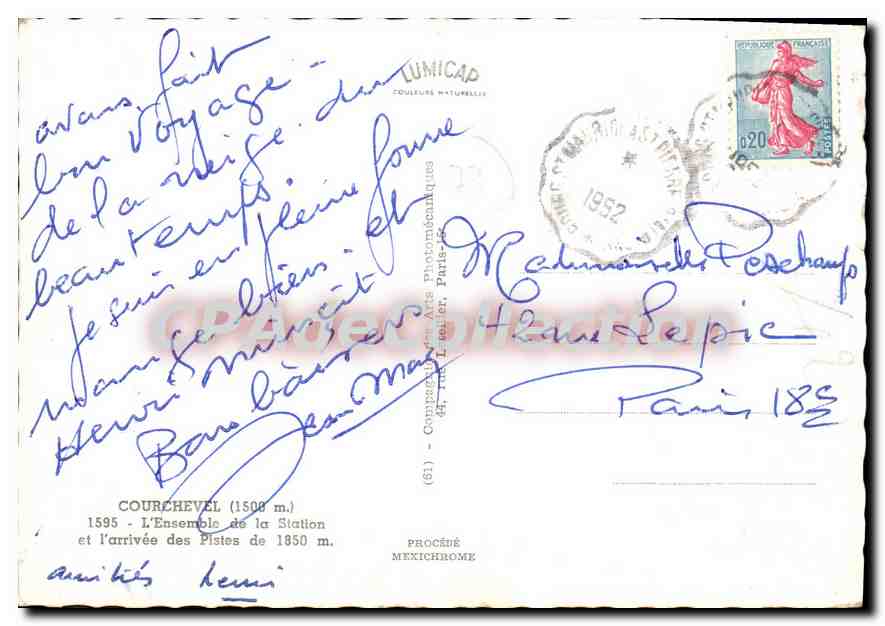 avons fait
bon voyage -
de la neige du
beau temps.
je suis en pleine forme
mange bien - et
Henri maigrit
Bons baisers
Jean Mary
COURCHEVEL (1500 m.)
1595 - L'Ensemble de la Station
et l'arrivée des Pistes de 1850 m.
amitiés Henri
LUMICAP
COULEURS NATURELLES
(61) - Compagnie des Arts Photomécaniques
44, rue Letellier, Paris-15e
PROCÉDÉ
MEXICHROME
REPUBLIQUE FRANÇAISE
0,20
POSTES
BOURG-ST MAURICE
1962
Mademoiselle Deschamps
42 rue Lepic
Paris 18e
CPAdeCollection